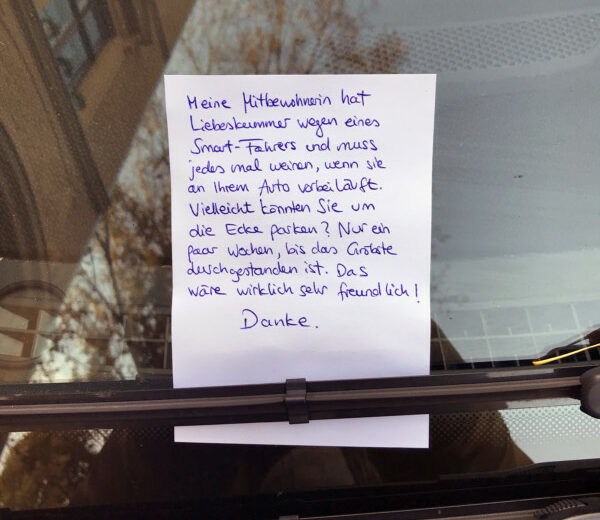 Meine Mitbewohnerin hat
Liebeskummer wegen eines
Smart-Fahrers und muss
jedes mal weinen, wenn sie
an Ihrem Auto vorbei läuft.
Vielleicht könnten Sie um
die Ecke parken? Nur ein
paar Wochen, bis das Gröbste
durchgestanden ist. Das
wäre wirklich sehr freundlich!
Danke.